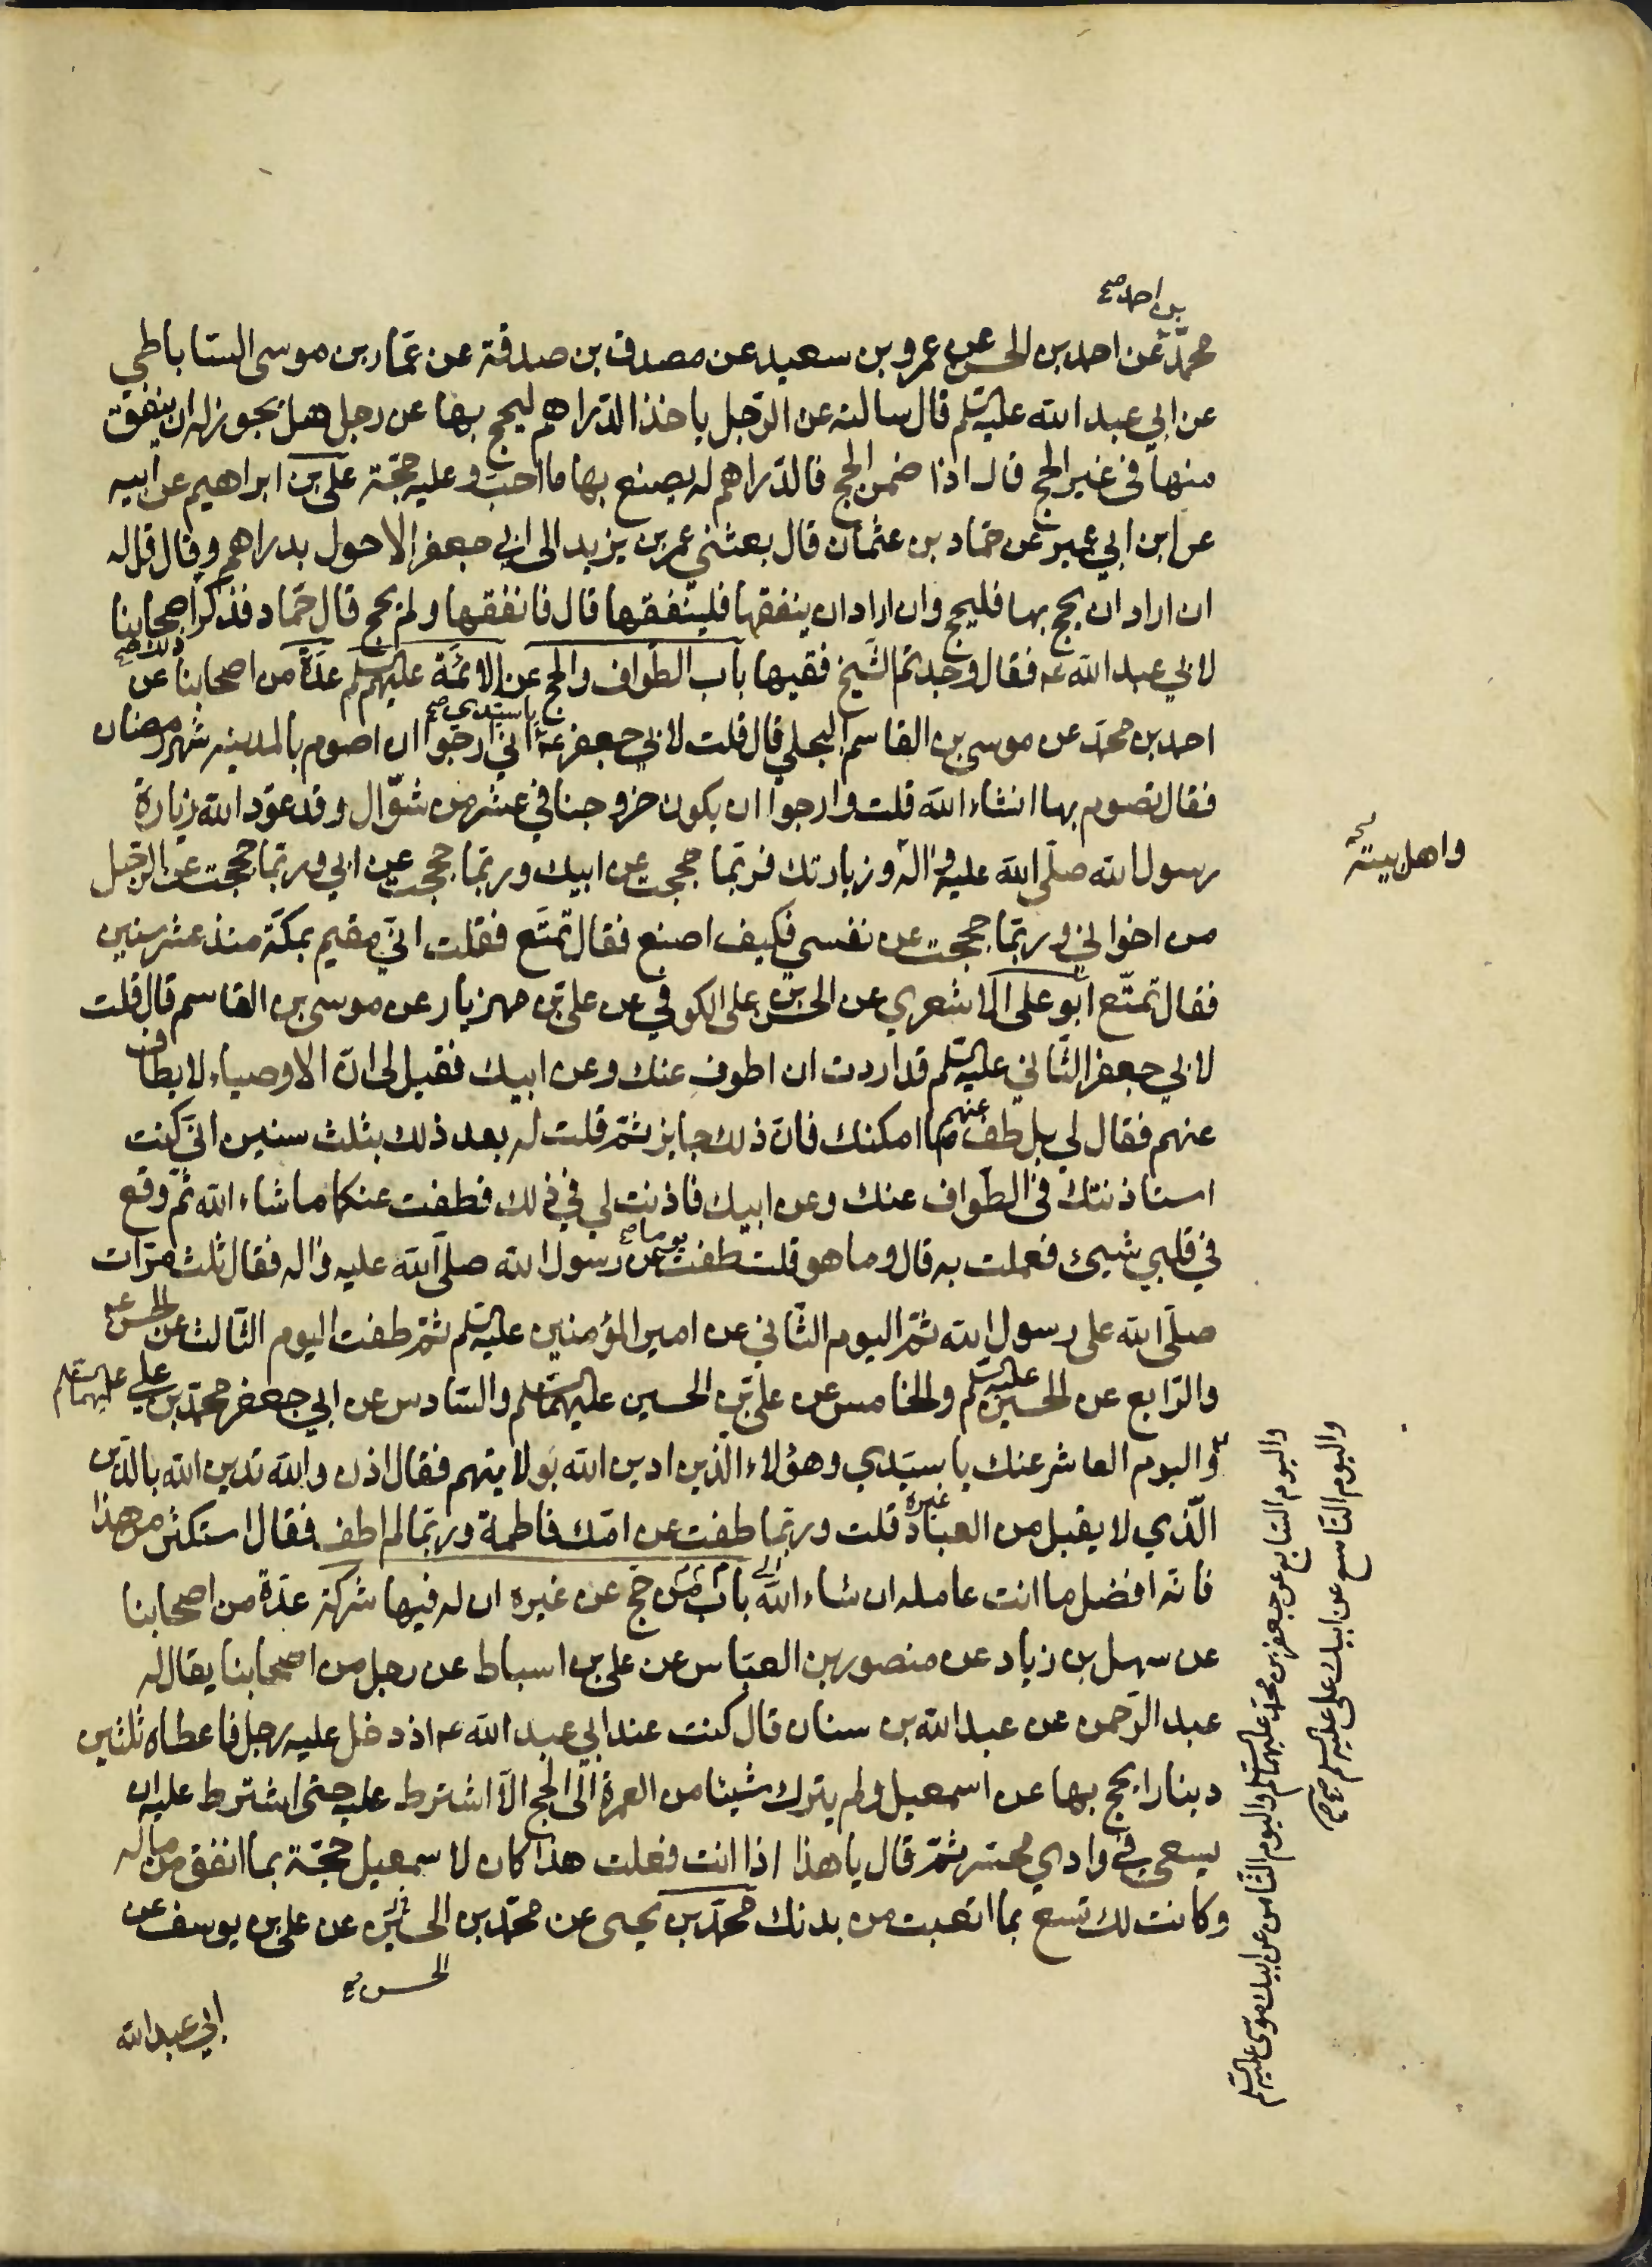 بن احمد صح
محمد عن احمد بن الحسن عن عمرو بن سعيد عن مصدق بن صدقة عن عمّار بن موسى السّاباطي
عن ابي عبد الله عليه السلم قال سالته عن الرّجل ياخذ الدّراهم ليحج بها عن رجل هل يجوز له ان ينفق
منها في غير الحج قال اذا ضمن الحج فالدّراهم له يصنع بها ما احبّ وعليه حجّة علي بن ابراهيم عن ابيه
عن ابن ابي عمير عن حمّاد بن عثمان قال بعثني عمر بن يزيد الى ابي جعفر الاحول بدراهم وقال قل له
ان اراد ان يحج بها فليحج وان اراد ان ينفقها فلينفقها قال فانفقها ولم يحج قال حمّاد فذكر اصحابنا
ذلك صح
لابي عبد الله عه فقال وجدتم الشّيخ فقيها باب الطّواف والحج عن الائمّة عليهم السلم عدّة من اصحابنا عن
يا سيّدي صح
احمد بن محمّد عن موسى بن القاسم البجلي قال قلت لابي جعفر عه انّي ارجوا ان اصوم بالمدينه شهر رمضان
فقال تصوم بها انشاء الله قلت وارجوا ان يكون خروجنا في عشر من شوّال وقد عوّد الله زيارة
رسول الله صلّى الله عليه واله وزيارتك فربّما حججت عن ابيك وربّما حججت عن ابي وربّما حججت عن الرّجل
واهل بيته
من اخواني وربّما حججت عن نفسي فكيف اصنع فقال تمتّع فقلت انّي مقيم بمكّة منذ عشر سنين
فقال تمتّع ابو علي الاشعري عن الحسن بن علي الكوفي عن علي بن مهزيار عن موسى بن القاسم قال قلت
لابي جعفر الثّاني عليه السلم قد اردت ان اطوف عنك وعن ابيك فقيل لي انّ الاوصياء لا يطاف
عنهم فقال لي بل طف عنهم ما امكنك فانّ ذلك جايز ثمّ قلت له بعد ذلك بثلث سنين انّي كنت
استاذنتك في الطّواف عنك وعن ابيك فاذنت لي في ذلك فطفت عنكما ما شاء الله ثمّ وقع
في قلبي شيئ فعملت به قال وما هو قلت طفت يوما صح عن رسول الله صلّى الله عليه واله فقال ثلث مرّات
صلّى الله على رسول الله ثمّ اليوم الثّاني عن امير المؤمنين عليه السلم ثمّ طفت اليوم الثّالث عن الحسن عه
والرّابع عن الحسين عليه السلم والخامس عن علي بن الحسين عليهما السلم والسّادس عن ابي جعفر محمّد بن علي عليهما السلم
واليوم العاشر عنك يا سيّدي وهؤلاء الّذين ادين الله بولايتهم فقال اذن والله تدين الله بالدّين
الّذي لا يقبل من العباد غيره قلت وربّما طفت عن امّك فاطمة وربّما لم اطف فقال استكثر من هذا
فانّه افضل ما انت عامله ان شاء الله باب من حجّ عن غيره ان له فيها شركة عدّة من اصحابنا
عن سهل بن زياد عن منصور بن العبّاس عن علي بن اسباط عن رجل من اصحابنا يقال له
عبد الرّحمن عن عبد الله بن سنان قال كنت عند ابي عبد الله عه اذ دخل عليه رجل فاعطاه ثلثين
دينارا يحج بها عن اسمعيل ولم يترك شيئا من العمرة الى الحج الّا اشترط عليه حتّى اشترط عليه ان
يسعى في وادي محسّر ثمّ قال يا هذا اذا انت فعلت هذا كان لاسمعيل حجّة بما انفق من ماله
وكانت لك تسع بما اتعبت من بدنك محمّد بن يحيى عن محمّد بن الحسين عن علي بن يوسف عن
الحسن
ابي عبد الله
واليوم السّابع عن جعفر بن محمّد عليهما السلم واليوم الثّامن عن ابيك موسى عليه السلم
واليوم التّاسع عن ابيك علي عليه السلم صح